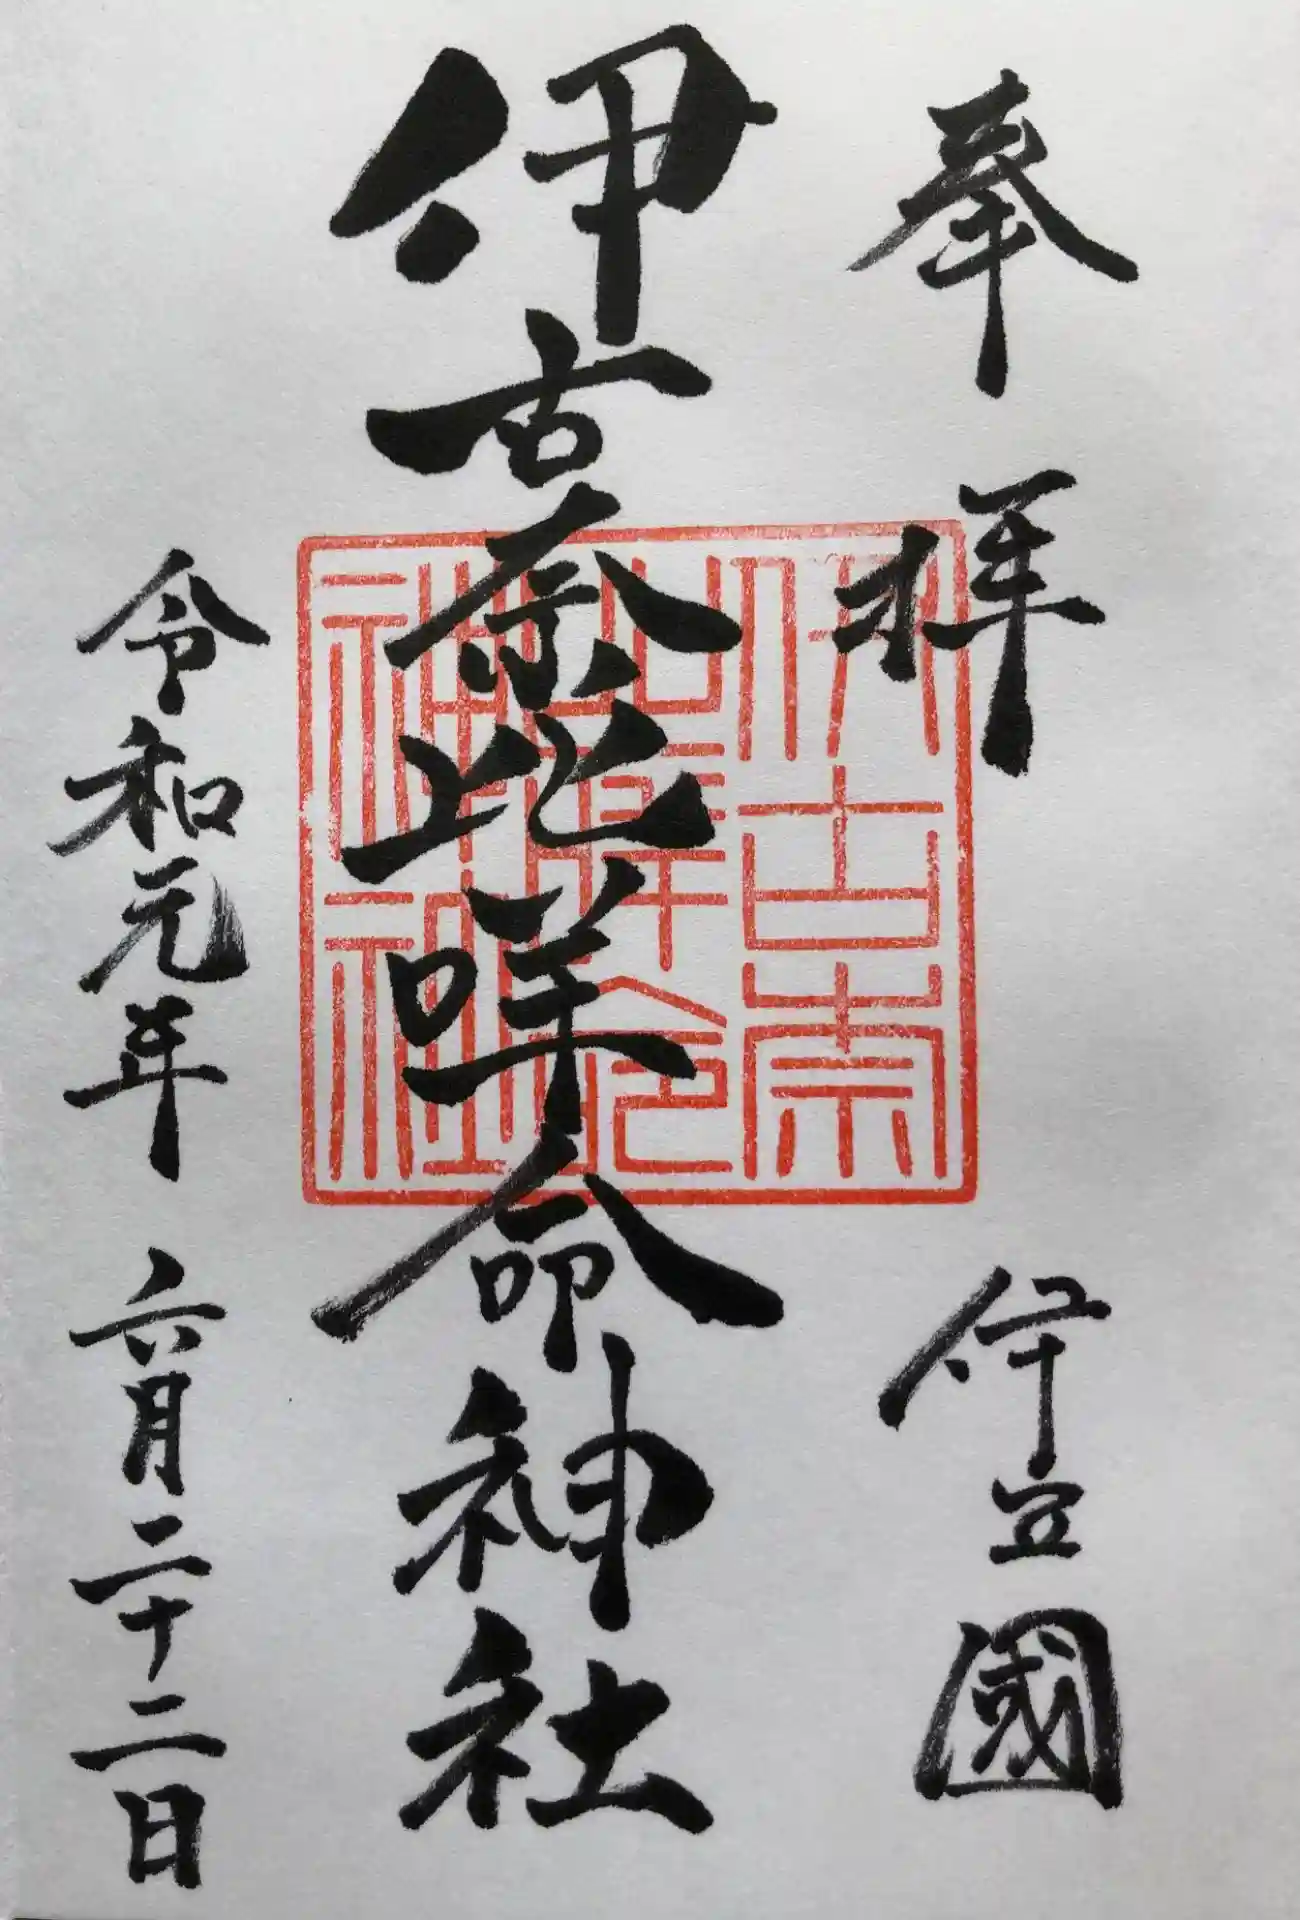 奉拝
伊豆國
伊古奈比咩命神社
伊古奈
比咩命
神社
令和元年
六月二十二日